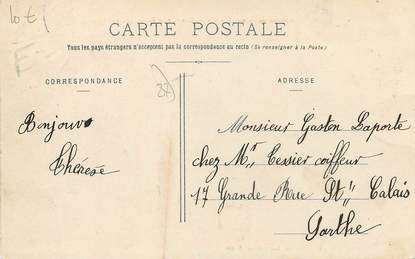 CARTE POSTALE
Tous les pays étrangers n'acceptent pas la correspondance au recto (Se renseigner à la Poste)
CORRESPONDANCE
ADRESSE
Bonjour
Thérèse
Monsieur Gaston Laporte
chez Mr Tessier coiffeur
17 Grande Rue St Calais
Sarthe